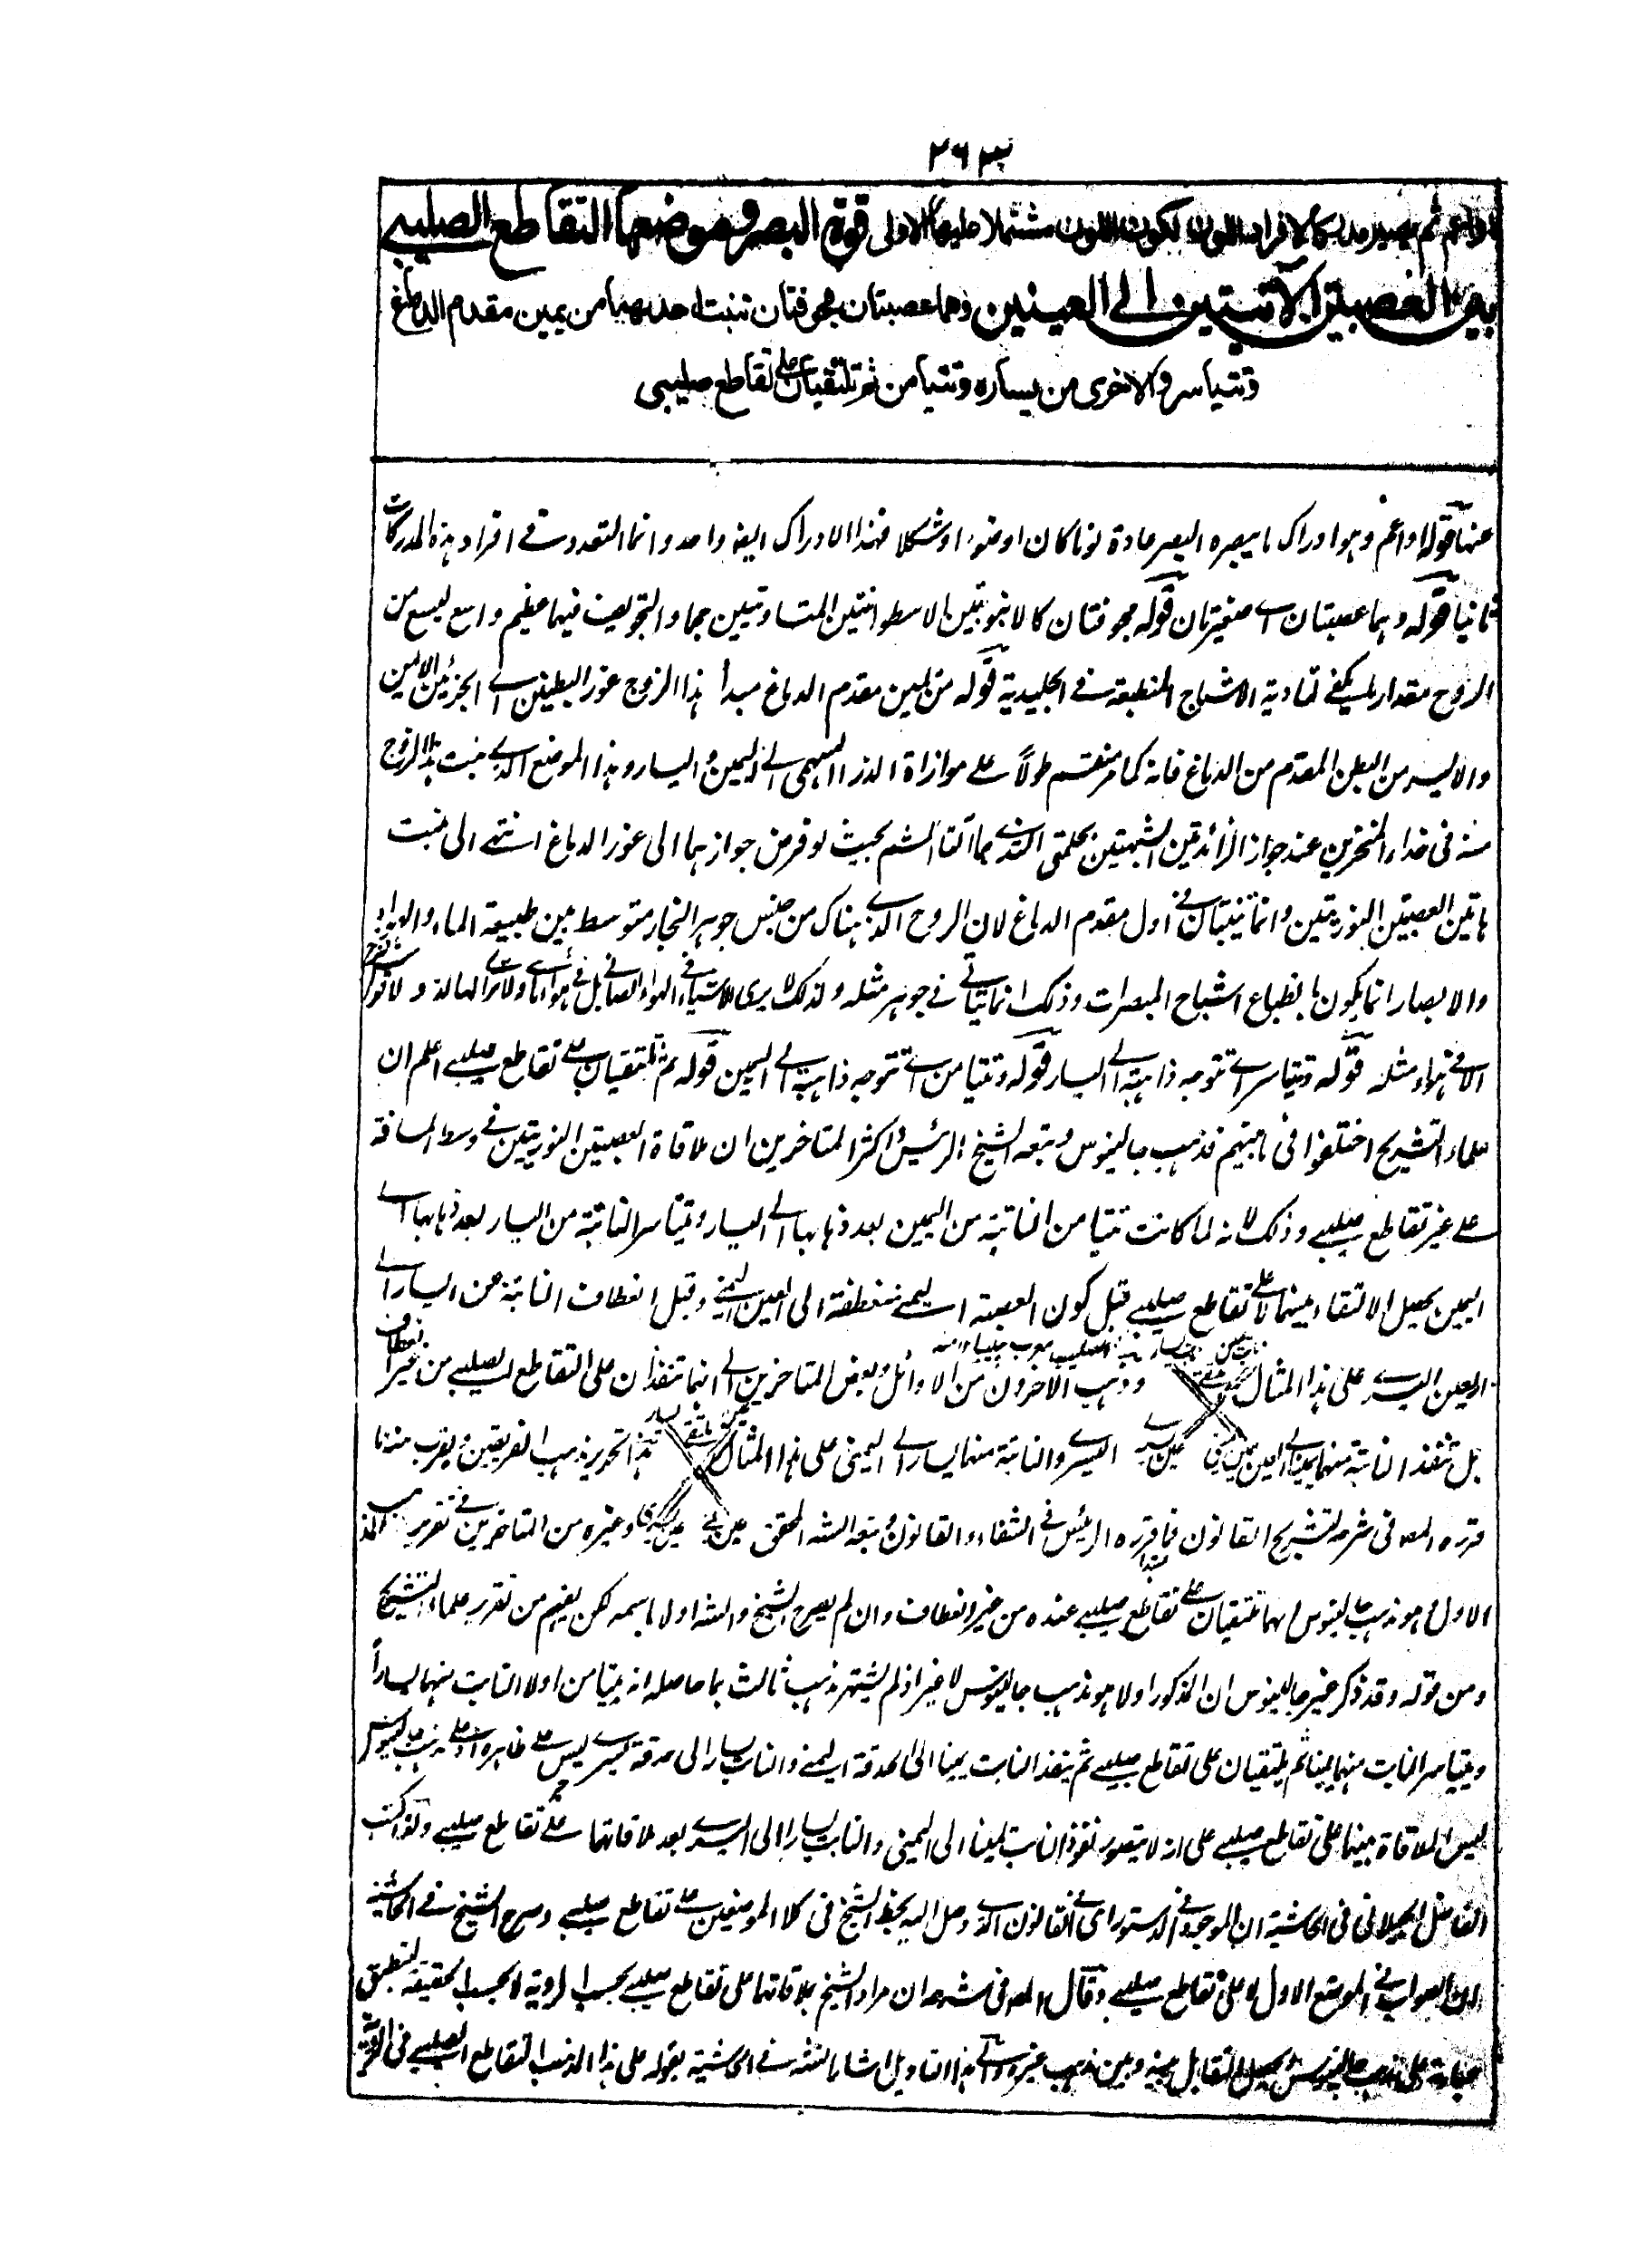 ٢٦٣
او اعم ثم يصير مدركا لافراد اللون لكون اللون مشتملا عليها الاولى قوة البصر وموضعها التقاطع الصليبي
بين العصبتين الآتيتين الى العينين وهما عصبتان مجوفتان تنبت احدهما من يمين مقدم الدماغ
وتتياسر والاخرى من يساره وتتيامن ثم تلتقيان على تقاطع صليبي
عنها قوله او اعم وهو ادراك ما يبصره البصر عادة لونا كان او ضوءا او شكلا فهذا الادراك ايضا واحد وانما التعدد في افراد هذه المدركات
ثانيا قوله وهما عصبتان اى صغيرتان قوله مجوفتان كالانبوبتين الاسطوانتين المتساويتين حجما والتجويف فيهما عظيم واسع ليسع من
الروح مقدار ما يكفى لتادية الاشباح المنطبعة في الجليدية قوله من يمين مقدم الدماغ مبدأ هذا الزوج غور البطينين اى الجزئين الايمن
والايسر من البطن المقدم من الدماغ فانه كما مر منقسم طولاً على موازاة الدرز السهمى الى اليمين واليسار وهذا الموضع الذى ينبت هذا الزوج
منه فى حذاء المنخرين عند جواز الزائدتين الشبهتين بحلمتى الثدى هما آلتا الشم بحيث لو فرض جوازهما الى غور الدماغ انتهى الى منبت
هاتين العصبتين النوريتين وانما تنبتان فى اول مقدم الدماغ لان الروح الذى هناك من جنس جوهر البخار متوسط بين طبيعة الماء والهواء
والابصار انما يكون بانطباع اشباح المبصرات وذلك انما يتاتى فى جوهر مثله ولذلك لا يرى الاشياء فى الهواء الصافى بل فى هواء ولا ترى الهالة ولا قوس قزح
الا فى هواء مثله قوله وتتياسر اى تتوجه ذاهبة الى اليسار قوله وتتيامن اى تتوجه ذاهبة الى اليمين قوله ثم تلتقيان على تقاطع صليبي اعلم ان
علماء التشريح اختلفوا فى ما بينهم فذهب جالينوس وتبعه الشيخ الرئيس واكثر المتاخرين ان ملاقاة العصبتين النوريتين فى وسط المسافة
على غير تقاطع صليبي وذلك لانه لما كانت تتيامن النابتة من اليمين بعد ذهابها الى اليسار وتتياسر النابتة من اليسار بعد ذهابها الى
اليمين يحصل الالتقاء بينهما لا على تقاطع صليبي قبل كون العصبة اليمنى منعطفة الى العين اليمنى وقبل انعطاف النابتة من اليسار الى
العين اليسرى على هذا المثال وذهب الآخرون من الاوائل وبعض المتاخرين الى انهما تنفذان على التقاطع الصليبي من غير انعطاف
بل تنفذ النابتة منهما يمينا الى العين اليسرى والنابتة منهما يسارا الى اليمنى على هذا المثال هذا تحرير مذهب الفريقين ويقرب منه ما
قرره المصـ فى شرحه لتشريح القانون فما قرره الرئيس فى الشفاء والقانون وتبعه الشـ المحقق وغيره من المتاخرين فى تقرير المذهب
الاول هو مذهب جالينوس انهما تلتقيان على تقاطع صليبي عنده من غير انعطاف وان لم يصرح الشيخ والشـ اولا باسمه لكن يفهم من تقرير علماء التشريح
ومن قوله وقد ذكر غير جالينوس ان المذكور اولا هو مذهب جالينوس لا غير اذ لم يشتهر مذهب ثالث بما حاصله انه يتيامن اولا النابت منهما يساراً
ويتياسر النابت منهما يمينا ثم يلتقيان على تقاطع صليبي ثم ينفذ النابت يمينا الى الحدقة اليمنى والنابت يسارا الى حدقة اليسرى ليس على ظاهره اذ على مذهب جالينوس
ليس الملاقاة بينهما على تقاطع صليبي على انه لا يتصور نفوذ النابت يمينا الى اليمنى والنابت يسارا الى اليسرى بعد ملاقاتهما على تقاطع صليبي ولذا كتب
الفاضل الجيلانى فى الحاشية ان الموجود فى الدستور اى فى القانون الذى وصل اليه بخط الشيخ فى كلا الموضعين على تقاطع صليبي وصرح الشيخ فى الحاشية
ان الصواب فى الموضع الاول لا على تقاطع صليبي وقال المصـ فى شرحه ان مراد الشيخ بملاقاتهما على تقاطع صليبي بحسب الروية لا بحسب الحقيقة لتنطبق
عبارته على مذهب جالينوس ويحصل التقابل بينه وبين مذهب غيره والى هذا التاويل اشار الشـ فى الحاشية بقوله على هذا المذهب التقاطع الصليبي فى